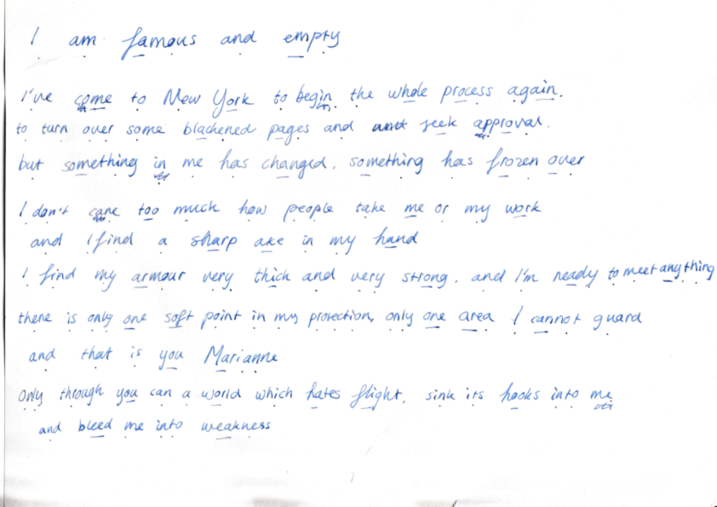 I am famous and empty
I've come to New York to begin the whole process again.
to turn over some blackened pages and seek approval.
but something in me has changed. something has frozen over
I don't care too much how people take me or my work
and I find a sharp axe in my hand
I find my armour very thick and very strong. and I'm ready to meet anything
there is only one soft point in my protection, only one area I cannot guard
and that is you Marianne
Only through you can a world which hates flight. sink its hooks into me
and bleed me into weakness